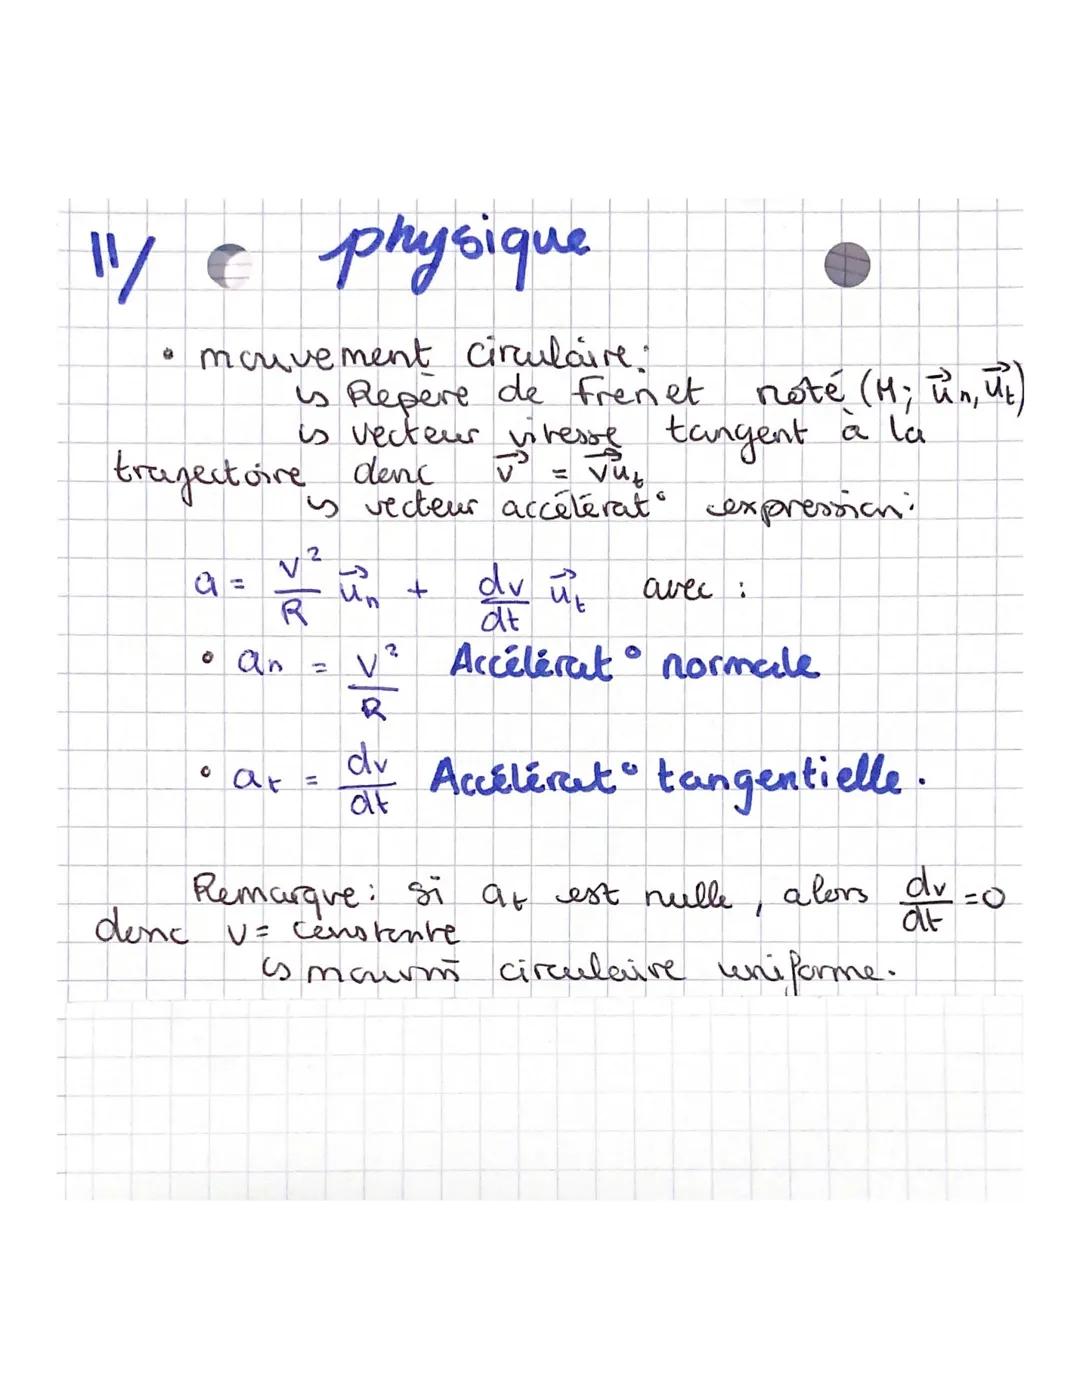 11/ physique
• mouvement circulaire:
↳ Repère de frenet noté (M; u⃗n, u⃗t)
↳ vecteur vitesse tangent à la
trajectoire donc v⃗ = v⃗ut
↳ vecteur accélérat° expression:
a = v²/R u⃗n + dv/dt u⃗t avec :
• an = v²/R Accélérat° normale
• at = dv/dt Accélérat° tangentielle.
Remarque: si at est nulle, alors dv/dt = 0
donc v = constante
↳ mouvm̄ circulaire uniforme.